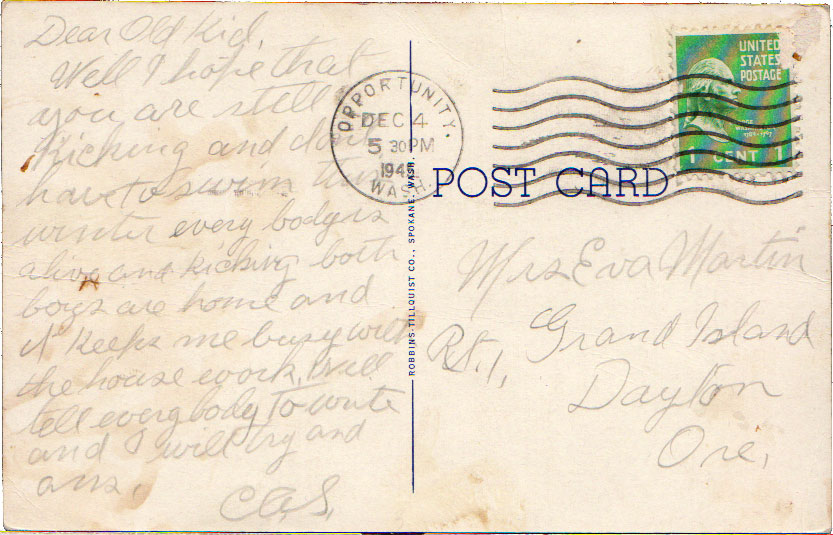 Dear Old Kid,
Well I hope that
you are still
kicking and don't
have to swim this
winter every body is
alive and kicking both
boys are home and
it keeps me busy with
the house work. Will
tell everybody to write
and I will try and
ans,
C.A.S.
OPPORTUNITY.
DEC 4
5 30 PM
194
WASH.
UNITED
STATES
POSTAGE
1 CENT 1
POST CARD
ROBBINS-TILLQUIST CO., SPOKANE, WASH.
Mrs Eva Martin
Rt. 1, Grand Island
Dayton
Ore,